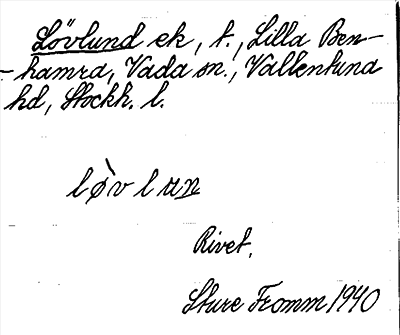 Lövlund ek, t., Lilla Ben-
-hamra, Vada sn., Vallentuna
hd, Stockh. l.
lø̀v lun
Rivet.
Sture Fromm 1940